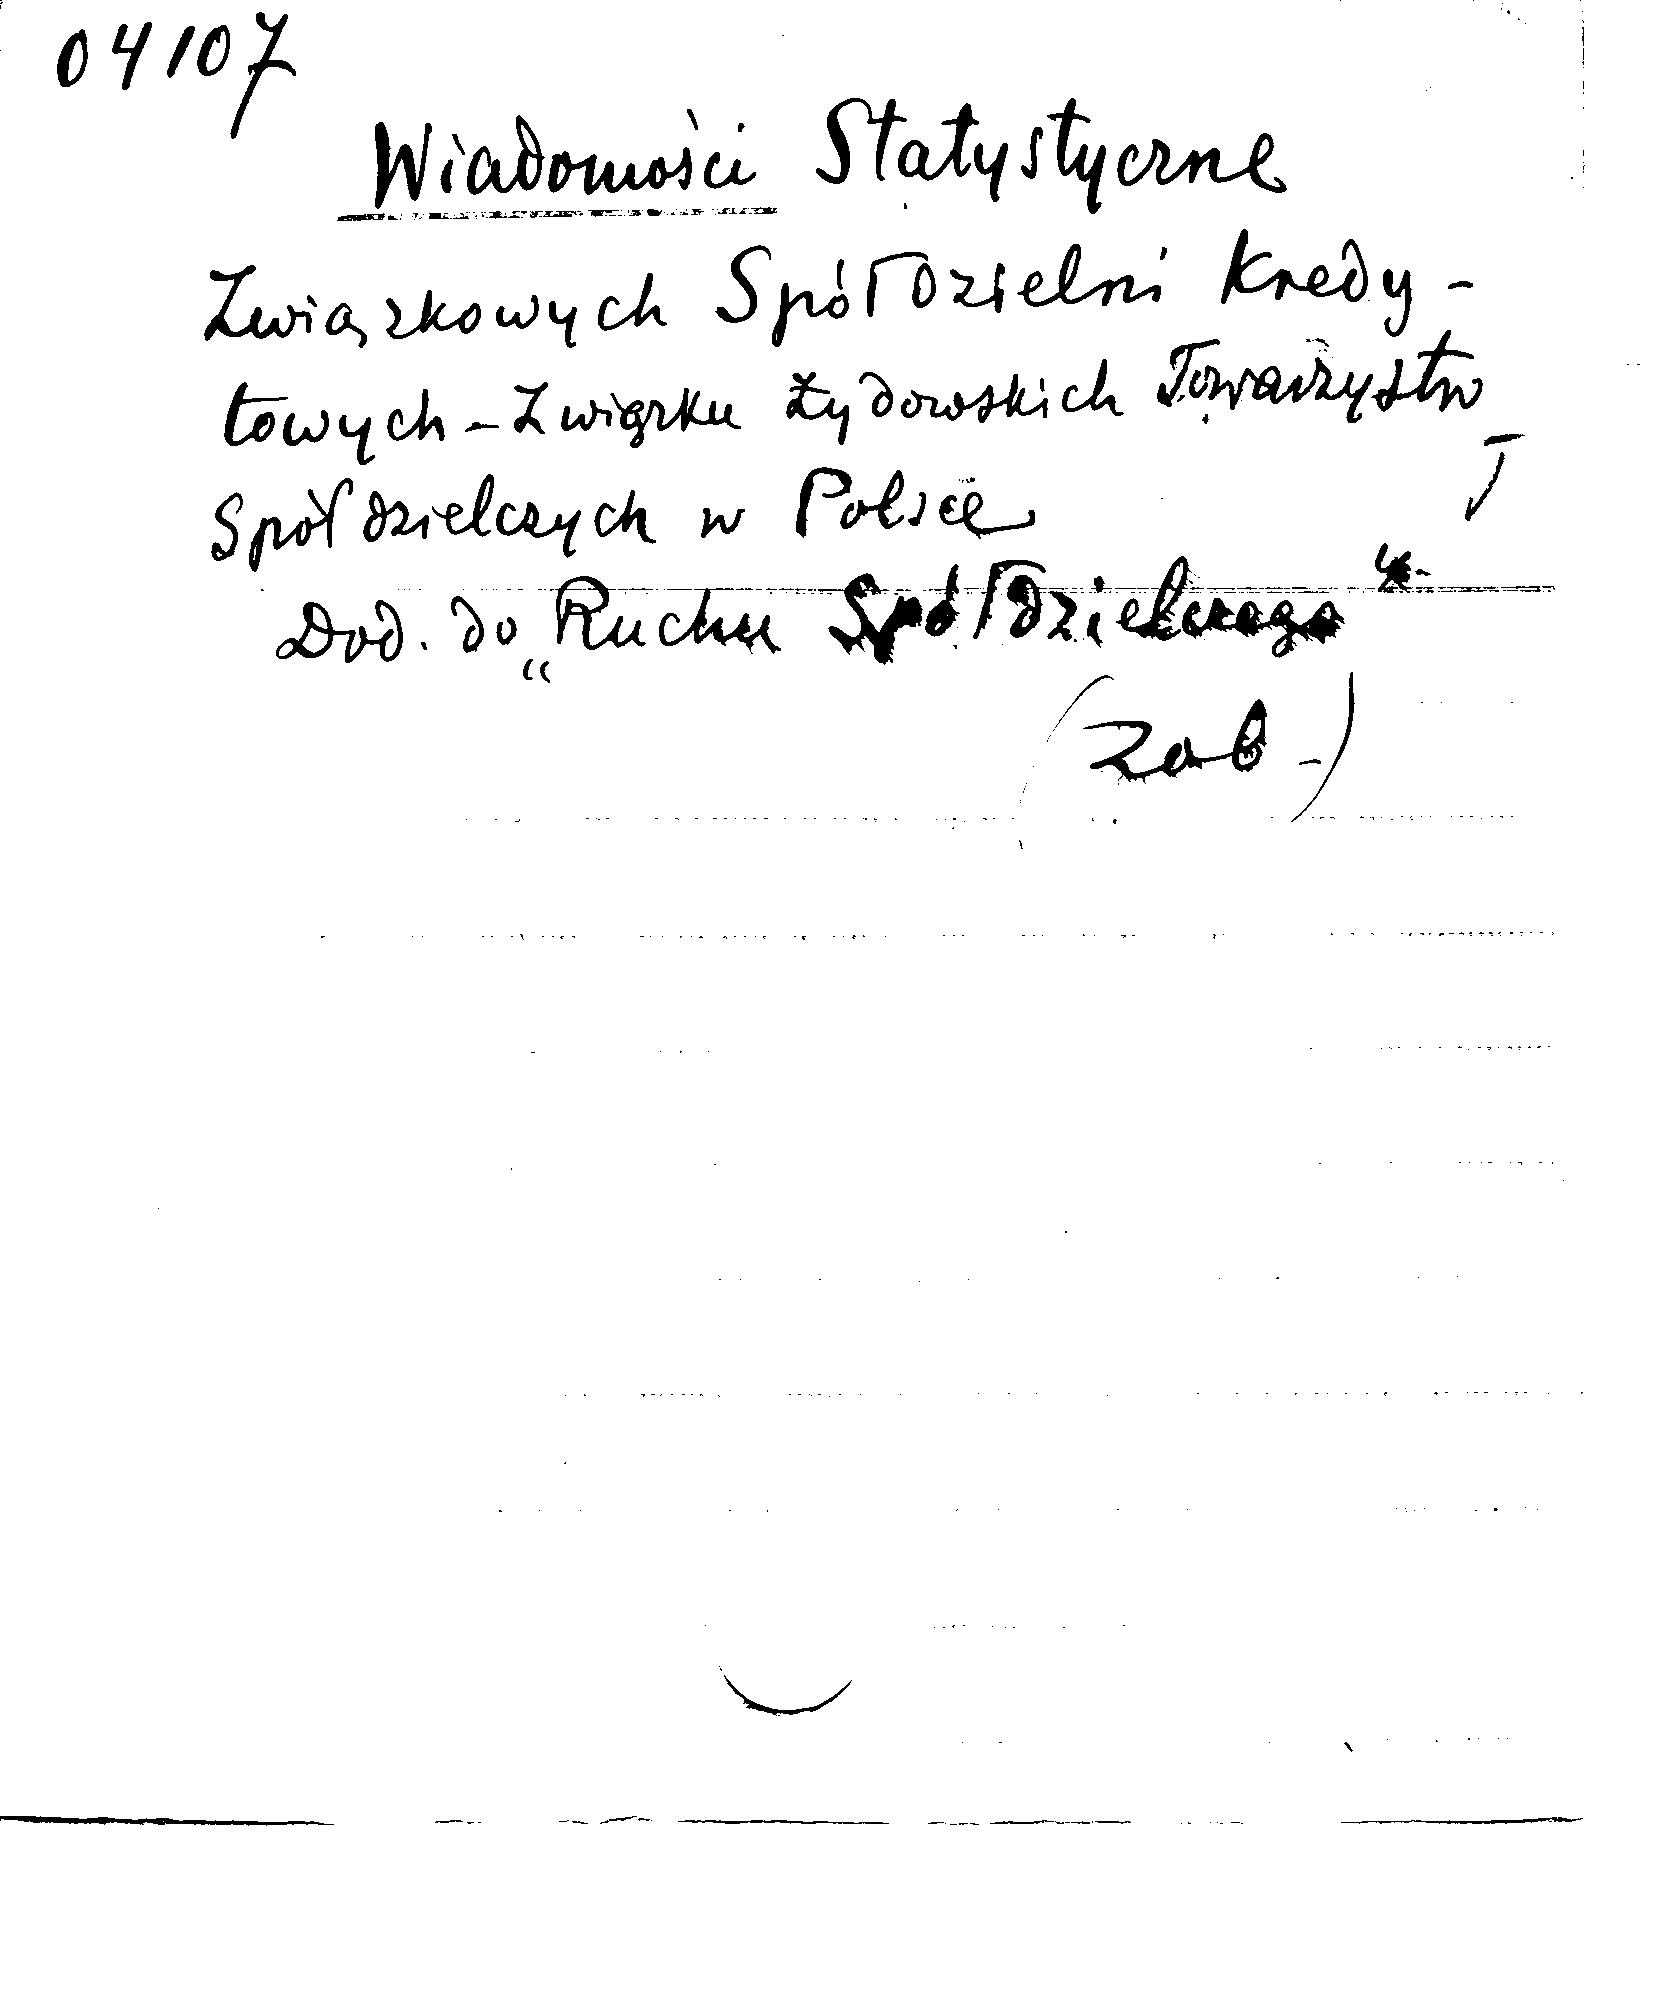 04107
Wiadomości Statystyczne
Związkowych Spółdzielni Kredy-
towych - Związku Żydowskich Towarzystw
Spółdzielczych w Polsce
Dod. do „Ruchu Spółdzielczego“
(Zob.)